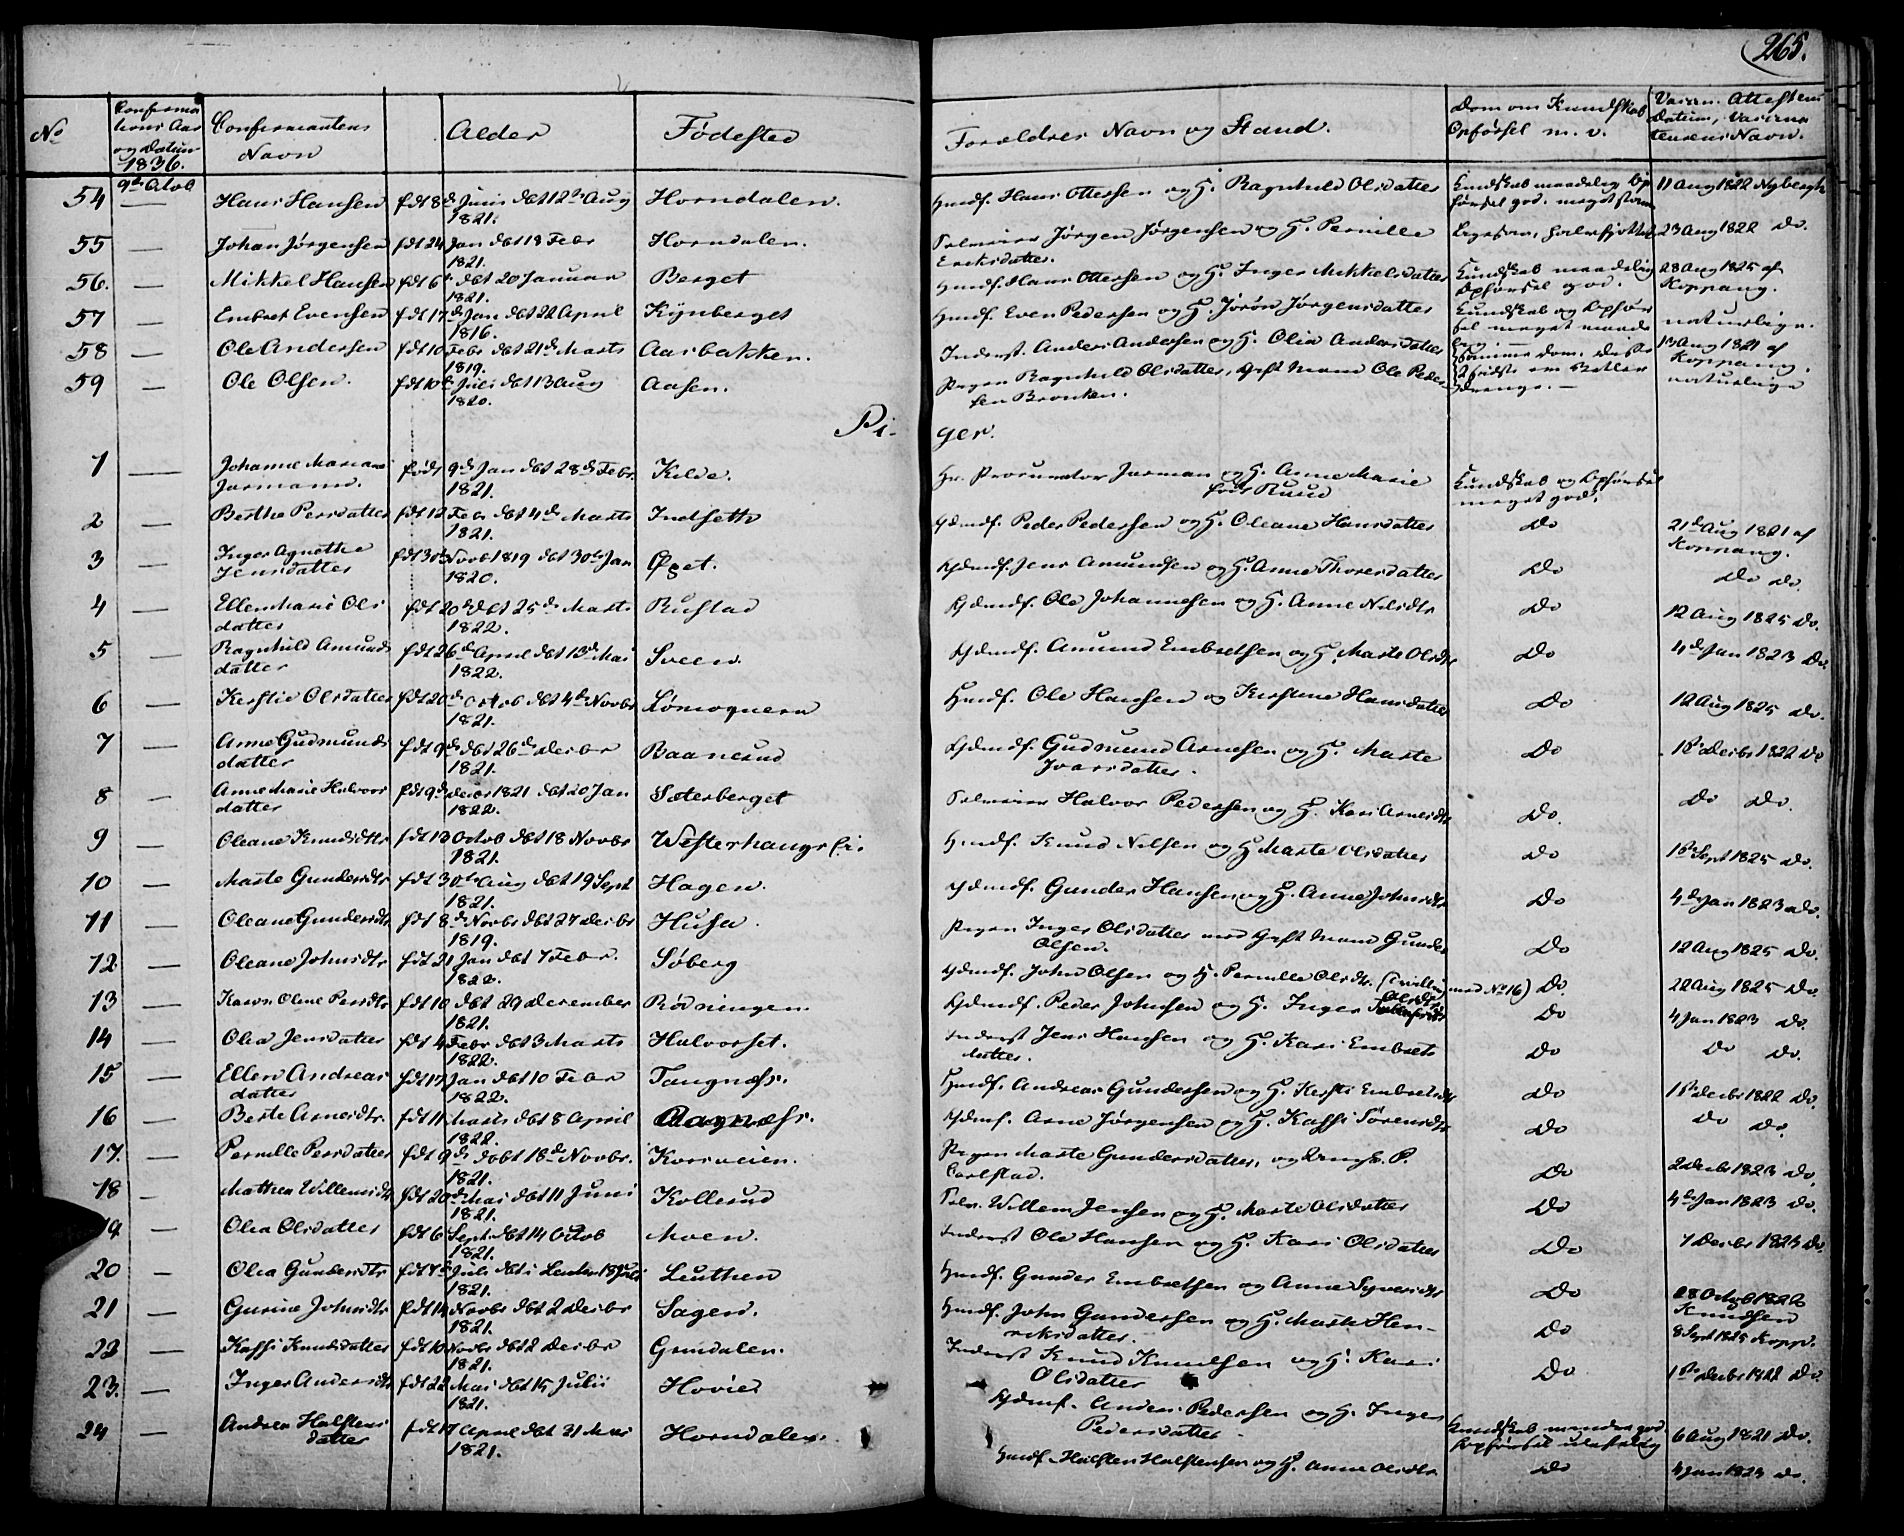 265.
No
Confirma
tions Aar
og Datum
1836.
9de Octob
Confirmantens
Navn
Alder
Fødested
Forældres Navn og Stand.
Dom om Kundskab
Opførsel m. v.
Vaccin. Attestens
Datum, Vaccina
teurens Navn.
54 — Hans Hansen fdt 8de Junii døbt 12te Aug 1821. Horndalen. Huusf. Hans Ottersen og H. Ragnhild Olsdatter Kundskab maadelig Op 11 Aug 1822 Nybergh
førsel god.
55 — Johan Jørgensen fdt 24 Jan døbt 18 Febr 1821. Horndalen. Jørgen Jørgensen og H. Pernille 23 Aug 1822 do.
Eriksdatter.
56. — Mikkel Hansen fdt 6te døbt 20 Januar 1821. Berget Huusf. Hans Ottersen og H. Inger Mikkelsdatter Kundskab maadelig 28 Aug 1825 af
Opførsel god. Koppang.
57 — Embret Evensen fdt 17de Jan døbt 22 April 1816. Kynberget Huusf. Even Pedersen og H. Jørøn Jørgensdatter Kundskab og Opfør
sel meget maade naturlige.
58 — Ole Andersen fdt 10 Febr døbt 21de Marts 1819. Aasbakken. Inderst. Anders Andersen og H. Olia Andersdatter samme dom. disse 13 Aug 1821 af
Koppang.
59 — Ole Olsen. fdt 10de Juli døbt 13 Aug 1820. Aasen. Pigen Ragnhild Olsdatter, Gift Mand Ole Peder
sen Bronken. naturlige
Pi-
ger.
1 — Johanne Mariane
Jarmann. født 9de Jan døbt 28de Febr. 1821. Kilde. Hr. Procurator Jarman og H. Anne Marie
født Ruud Kundskab og Opførsel
meget god.
2 — Berthe Persdatter fdt 12 Febr døbt 4de Marts 1821. Indseth Gdmdf. Peder Pedersen og H. Oleane Hansdatter Do 21de Aug 1821 af
Koppang.
3 — Inger Agnethe
Jensdatter fdt 30te Novb 1819 døbt 30te Jan 1820. Øget. Gdmdf. Jens Amundsen og H. Anne Thoresdatter Do Do do.
4 — Ellen Marie Ols
datter fdt 20de døbt 25de Marts 1822. Rustad Gdmdf. Ole Johannesen og H. Anne Nilsdtr Do 12 Aug 1825 do.
5 — Ragnhild Amunds
datter fdt 26de April døbt 13de Mai 1822. Sveen Gdmdf. Amund Embretsen og H. Marte Olsdtr Do 4de Jan 1823 Do.
6 — Kerstie Olsdatter fdt 20de Octob døbt 4de Novbr 1821. Huusf. Ole Hansen og Kerstine Hansdatter Do 12 Aug 1825 do.
7 — Anne Gudmunds
datter fdt 9de døbt 26de Decbr 1821. Baanerud Gdmdf. Gudmund Arnesen og H. Marte
Ivarsdatter. Do 18 Decbr 1822 Do
8 — Anne Marie Halvors
datter fdt 9de Decbr 1821 døbt 20 Jan 1822. Sæterberget Halvor Pedersen og H. Kari Arnesdtr Do. Do Do.
9 — Oleane Knudsdtr fdt 13 Octob døbt 18 Novbr 1821. Huusf. Knud Nilsen og H Marte Olsdatter Do 1ste Sept 1825 do.
10 — Marte Gundersdtr fdt 30te Aug døbt 19 Sept 1821. Hagen. Gdmdf. Gunder Hansen og H. Anne Johnsdtr Do 4de Jan 1823 do.
11 — Oleane Gundersdtr fdt 8de Novbr døbt 27 Decbr 1819. Husa. Pigen Inger Olsdatter med Gift Mand Gunder
Olsen. Do 12 Aug 1825 do.
12 — Oleane Johnsdtr fdt 21 Jan døbt 7 Febr. 1822. Søberg Gdmdf. John Olsen og H. Pernille Olsdtr. (Tvilling med No 16) Do. 22 Aug 1825 do.
13 — Karen Oline Persdtr fdt 10 døbt 29 December 1821. Rødningen. Gdmdf. Peder Johnsen og H. Inger Olsdtr Do 4 Jan 1823 do.
14 — Olea Jensdatter fdt 4 Febr døbt 3 Marts 1822. Halvorset. Inderst Jens Hansen og H. Kari Embrets
datter. Do Do do.
15 — Ellen Andreas
datter fdt 17 Jan døbt 10 Febr 1822. Tangnæss. Huusf. Andreas Gundersen og H. Kersti Embretsdtr Do 1ste Decbr 1822 Do.
16 — Berte Arnesdtr. fdt 11 Marts døbt 8 April 1822. Gdmf. Arne Jørgensen og H. Kassi Sørensdtr Do Do do.
17. — Pernille Persdatter fdt 9de døbt 18de Novbr. 1821. Korsveien. Pigen Marte Gundersdatter, og P.
Carlstad. Do 2 Decbr 1823 do.
18 — Mathea Willemsdtr fdt 20de Mai døbt 11 Juni 1821. Kollerud Willem Jensen og H. Marte Olsdatter Do 4de Jan 1823 do.
19 — Olea Olsdatter fdt 6 Sept. døbt 14 Octob 1821. Moen. Inderst Ole Hansen og H. Kari Olsdatter Do 7 Decbr 1823 Do.
20 — Olea Gundersdtr fdt 7de Juli døbt i Leuten 1821. Leuthen Huusf. Gunder Embretsen og Anne Syversdtr Do 28 Octob 1822
Knudsen
21 — Gurine Johnsdtr fdt 14 Novbr døbt 2 Decbr 1821. Sagen. Huusf. John Gundersen og H. Marte Hen-
riksdatter. Do 8 Sept 1825 Kopp.
22 — Kassi Knudsdatter fdt 10 Novbr døbt 2 Decbr 1821. Grindalen. Inderst Knud Knudsen og H. Kari
Olsdatter Do 1ste Decbr 1822 Do.
23. — Inger Andersdtr fdt 22 Mai døbt 15 Julii 1821. Hovie Gdmf. Anders Pedersen og H. Inger
Pedersdatter Kundskab god
Opførsel 6 Aug 1821 Do.
24 — Andrea Halstens
datter fdt 17 April døbt 21 Mai 1821. Horndalen. Huusf. Halsten Halstensen og H. Anne Olsdtr Do 4 Jan 1823 do.